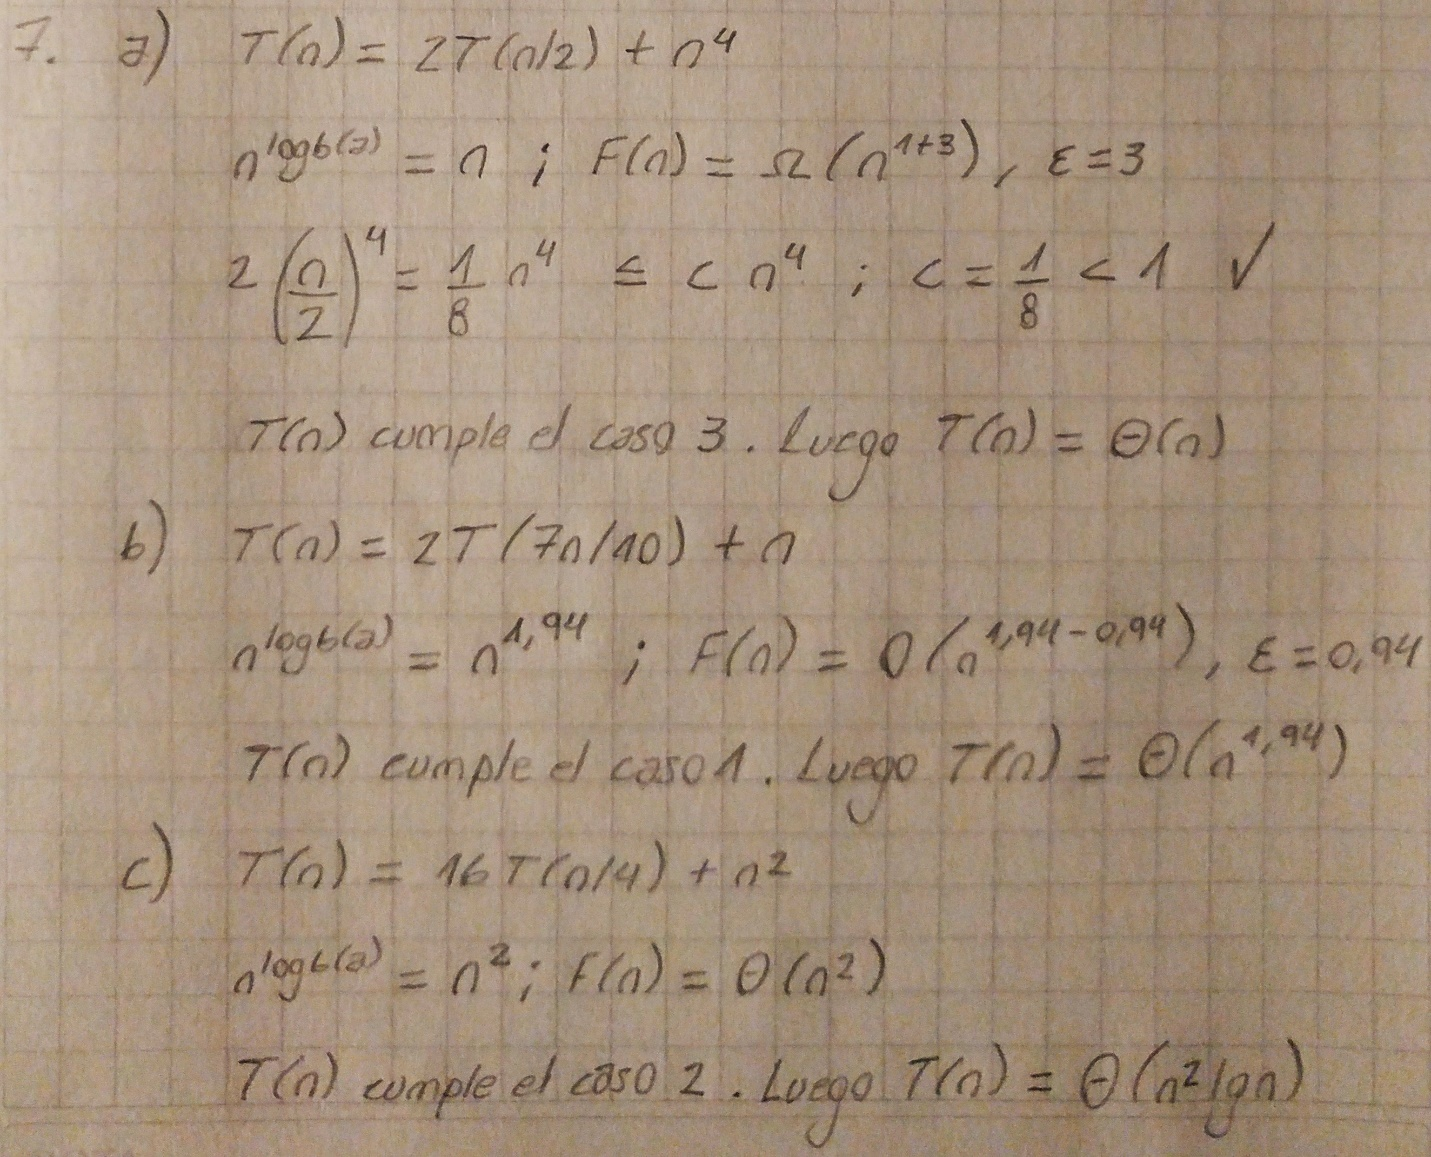 7. a) T(n) = 2T(n/2) + n⁴
n^logb(a) = n ; F(n) = Ω(n^1+3), ε=3
2(n/2)⁴ = 1/8 n⁴ ≤ c n⁴ ; c = 1/8 < 1 ✓
T(n) cumple el caso 3. Luego T(n) = Θ(n)
b) T(n) = 2T(7n/10) + n
n^logb(a) = n^1,94 ; F(n) = O(n^1,94-0,94), ε=0,94
T(n) cumple el caso 1. Luego T(n) = Θ(n^1,94)
c) T(n) = 16T(n/4) + n²
n^logb(a) = n² ; F(n) = Θ(n²)
T(n) cumple el caso 2. Luego T(n) = Θ(n²lgn)